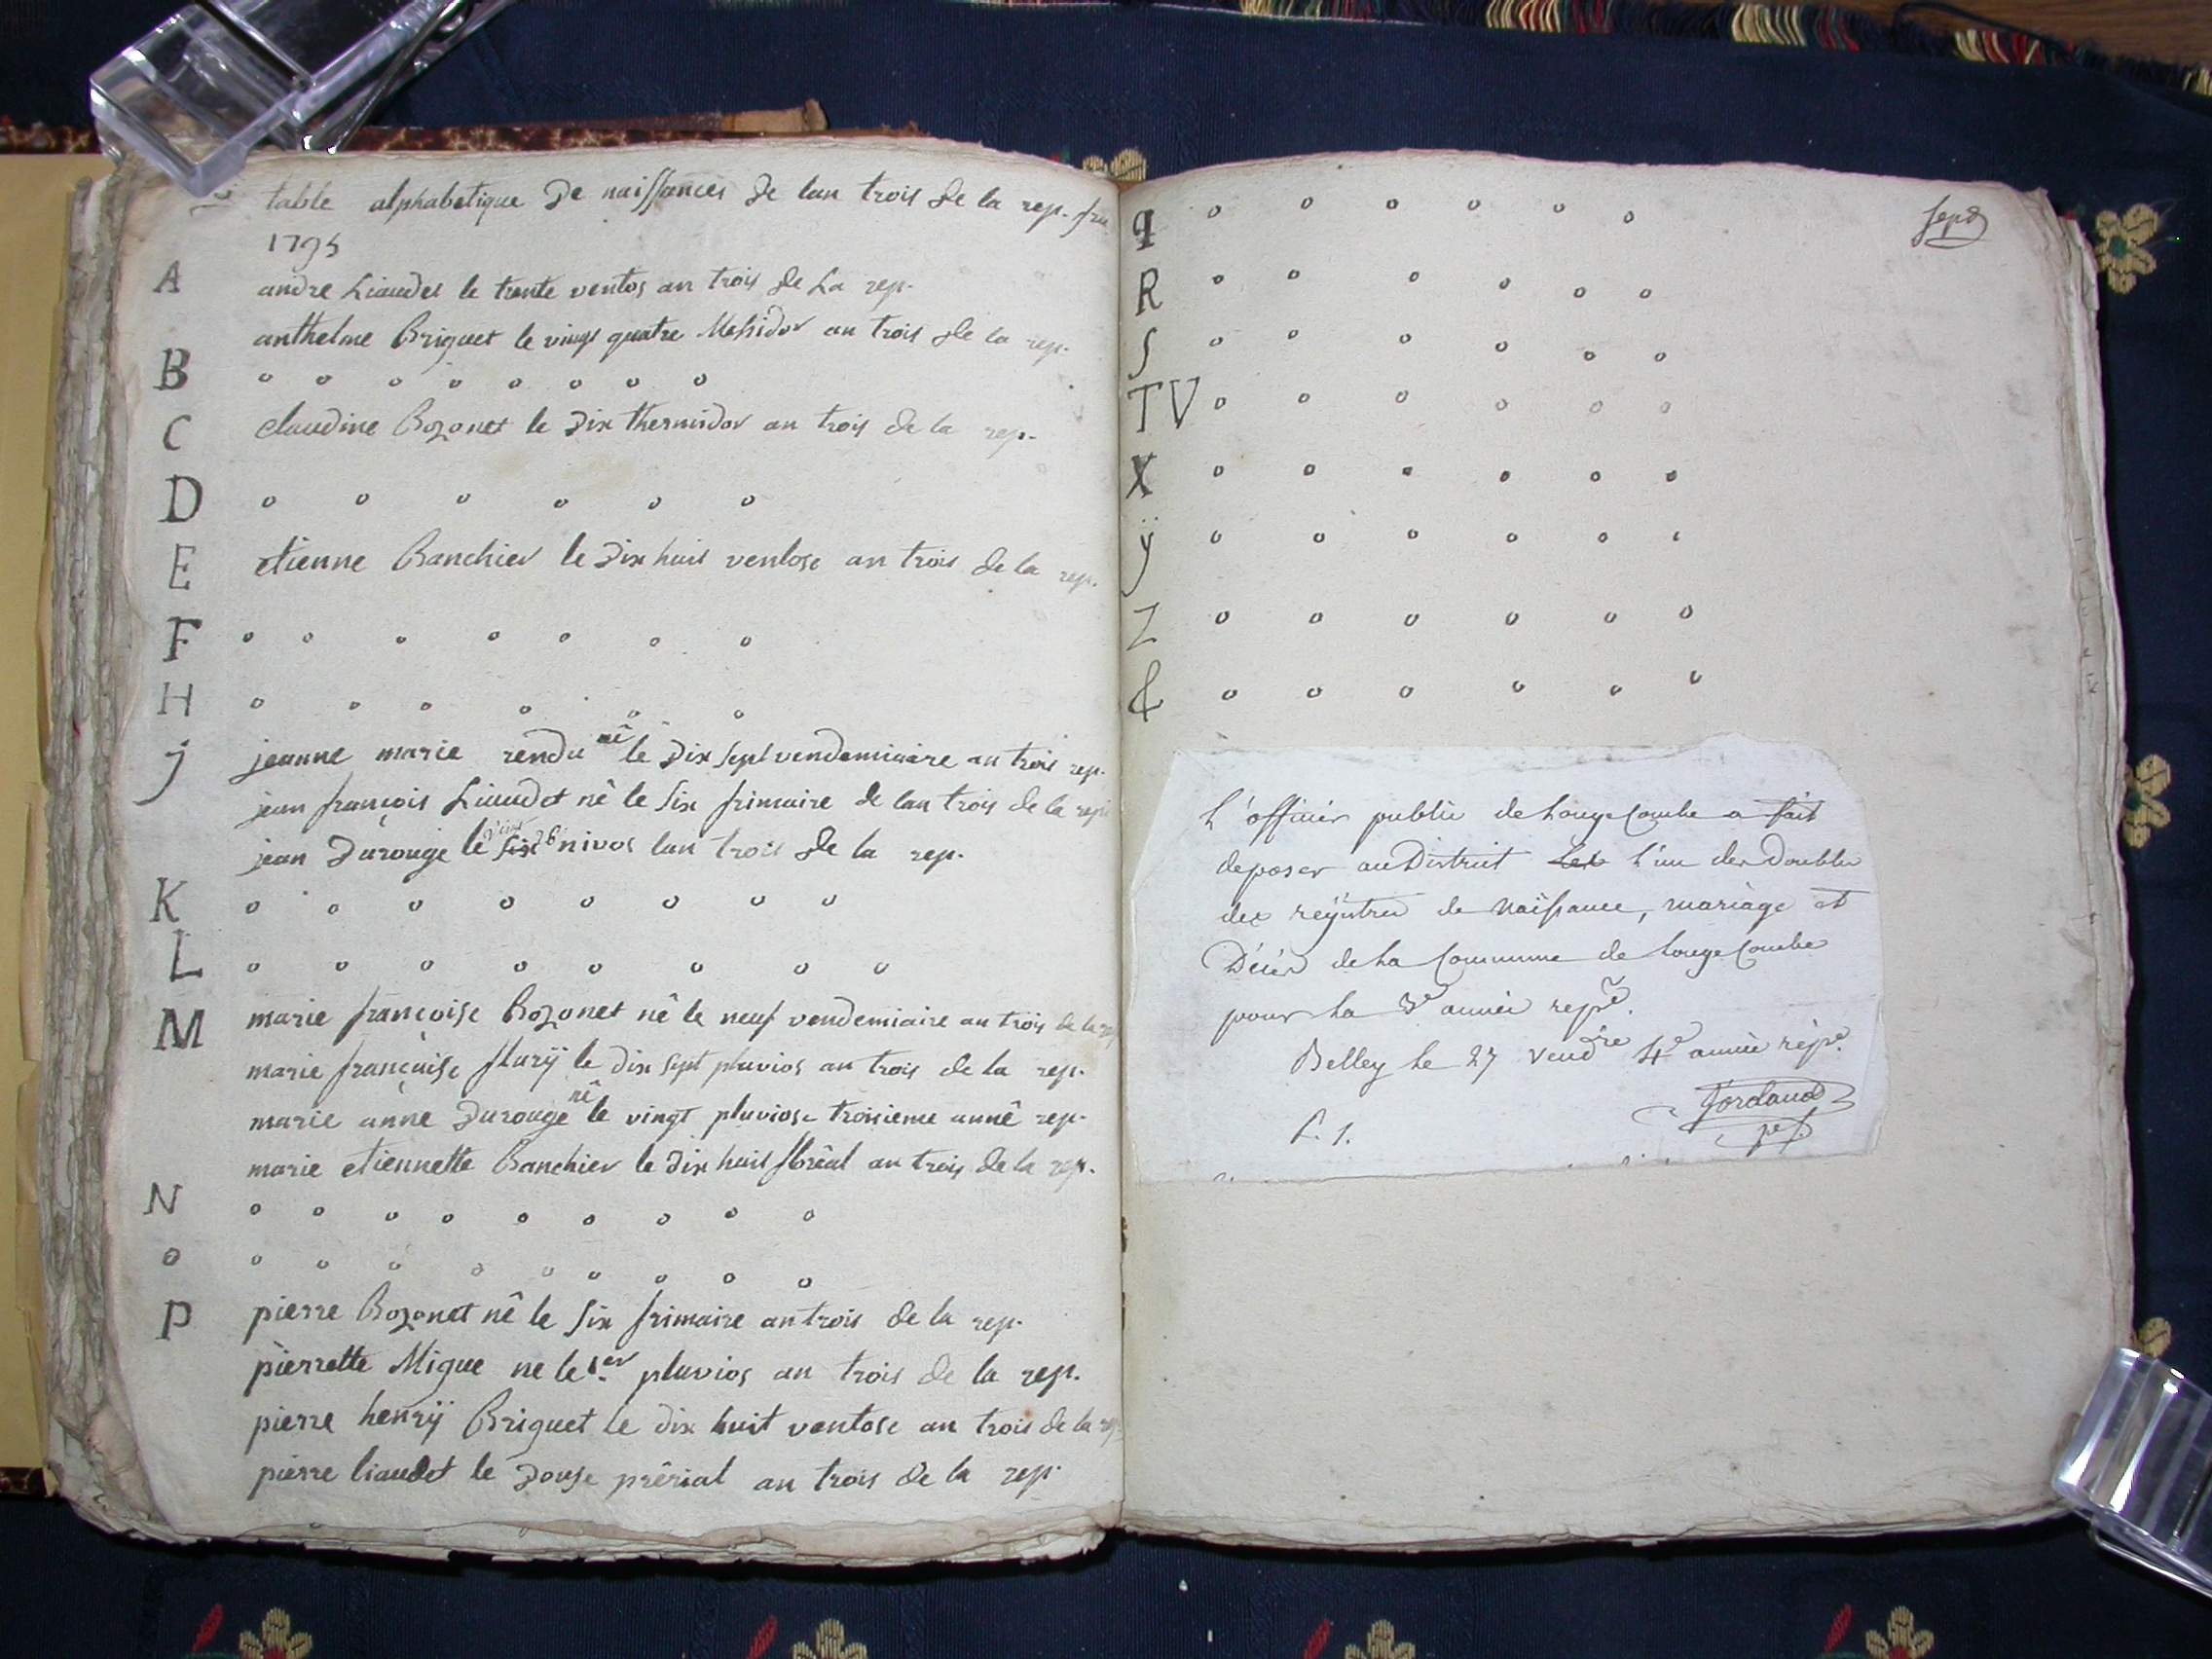 table alphabetique De naissances De lan trois de la rep. fra
1795
A andre Liaudet le trente ventos an trois de La rep.
anthelme Briguet le vingt quatre Messidor an trois de la rep.
B o o o o o o o o
C claudine Bozonet le Dix thermidor an trois de la rep.
D o o o o o o
E etienne Banchier le Dix huit ventose an trois de la rep.
F o o o o o o o
H o o o o o o
j jeanne marie rendu nê le Dix sept vendemiaire an trois rep.
jean françois Liaudet nê le six frimaire de lan trois de la rep
jean Durouge le six nivos lan trois de la rep.
K o o o o o o o o
L o o o o o o o o
M marie françoise Bozonet nê le neuf vendemiaire an trois de la rep
marie françoise flurÿ le dix sept pluvios an trois de la rep.
marie anne Durouge nê le vingt pluviose troisieme annê rep.
marie etiennette Banchier le Dix huit florêal an trois de la rep.
N o o o o o o o o o
o o o o o o o o o o
P pierre Bozonet nê le six frimaire an trois de la rep.
pierrette Migue ne le 1er pluvios an trois de la rep.
pierre henrÿ Briguet le dix huit ventose an trois de la rep
pierre liaudet le Douse prêrial an trois de la rep.
sept
q o o o o o o
R o o o o o o
S o o o o o o
TV o o o o o o
X o o o o o o
ÿ o o o o o o
Z o o o o o o
& o o o o o o
L'officier public de Longecombe a fait
deposer au District Les L'un des Doubles
desregîtres de Naissance, mariage et
Décès de La Commune de Longecombe
pour La 3e année repe.
Belley Le 27 vendre 4e année repe.
P. 1.